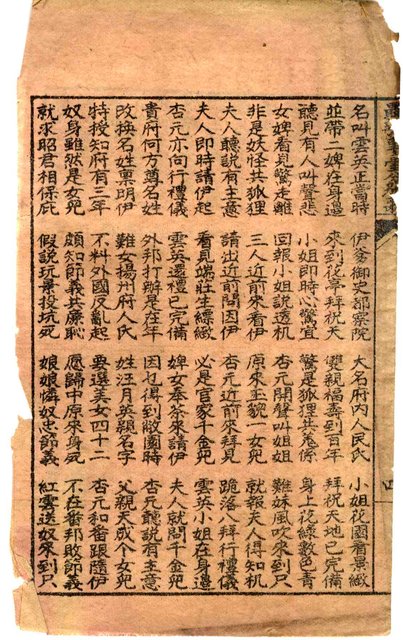 名叫雲英正當時 伊爹御史都察院 大名府內人民氏 小姐花園看景緻
並帶二婢在身邊 來到花亭拜祝天 雙親福壽到百年 拜祝天地已完備
聽見有人叫聲悲 小姐即時心驚宜 驚是狐狸共鬼怪 身上花綠數色青
女婢看見驚走離 回報小姐說透机 杏元開聲叫姐姐 難妹風吹來到只
非是妖怪共狐狸 三人近前來看伊 原來玉貌一女兒 就報夫人得知机
夫人聽說有主意 請出近前問因伊 杏元近前來拜見 跪落八拜行禮儀
夫人即時請伊起 看見端莊生縹緻 必是官家千金兒 雲英小姐在身邊
杏元亦向行禮儀 雲英還禮已完備 婢女奉茶來請伊 夫人就問千金兒
貴府何方尊名姓 外邦打辦是在年 因乜得到敝園時 杏元聽說有主意
改換名姓稟明伊 難女揚州府人氏 姓汪月英親名字 父親天成个女兒
特授知府有三年 不料外國反亂起 要選美女四十二 杏元和番跟隨伊
奴身雖然是女兒 頗知節義共廉恥 愿歸中原來身死 不在番邦敗節義
就求昭君相保庇 假說玩景投坑死 娘娘憐奴忠節義 紅雲送奴來到只